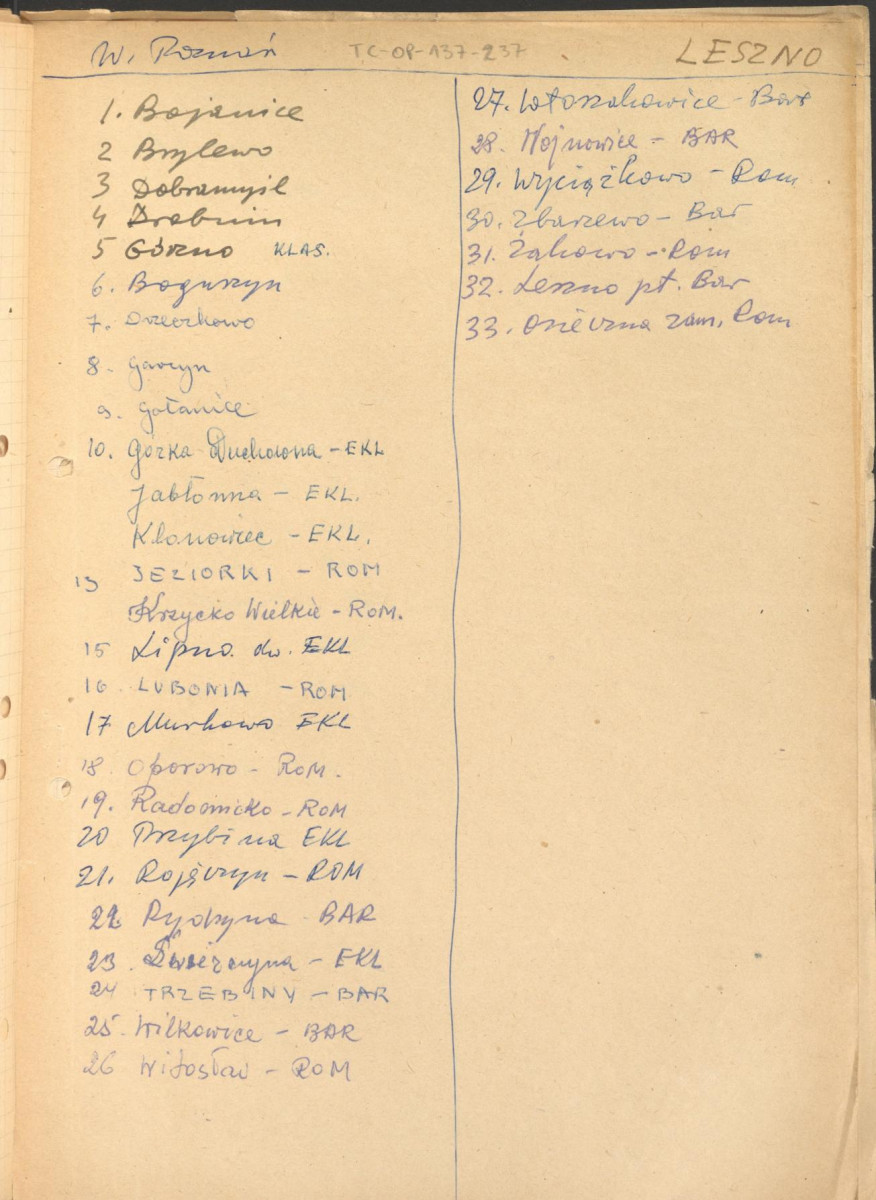 W. Poznań TC-OP-137-237 LESZNO
1. Bojanice
2 Brylewo
3 Dobramyśl
4 Drobnin
5 Górzno KLAS.
6. Boguszyn
7. Drzeczkowo
8. Garzyn
9. Gołanice
10. Górka Duchowna - EKL
Jabłonna - EKL.
Klonowiec - EKL.
13 JEZIORKI - ROM
Krzycko Wielkie - ROM.
15 Lipno dw. EKL
16. LUBONIA - ROM
17 Murkowo EKL
18. Oporowo - ROM.
19. Radomicko - ROM
20 Przybina EKL
21. Rojęczyn - ROM
22 Rydzyna BAR
23. Świerczyna - EKL
24 TRZEBINY - BAR
25. Wilkowice - BAR
26 Witosław - ROM
27. Włoszakowice - Bar
28. Wojnowice - BAR
29. Wyciążkowo - Rom
30. Zbarzewo - Bar
31. Żakowo - Rom
32. Leszno pt. Bar
33. Osieczna zam. Rom